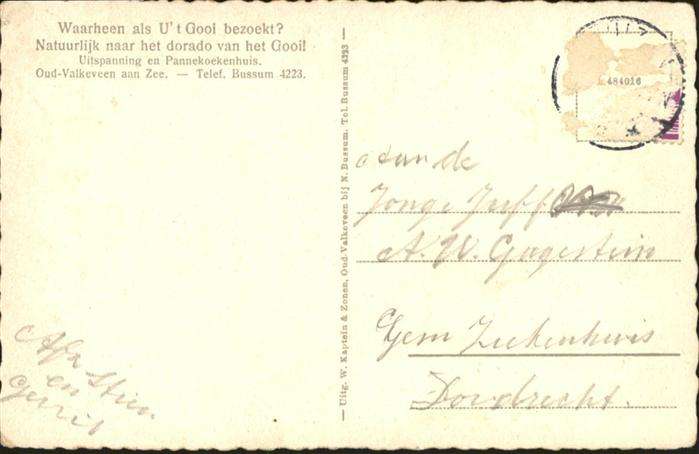 Waarheen als U't Gooi bezoekt?
Natuurlijk naar het dorado van het Gooi!
Uitspanning en Pannekoekenhuis.
Oud-Valkeveen aan Zee. — Telef. Bussum 4223.
— Uitg. W. Kaptein & Zonen, Oud-Valkeveen bij N. Bussum. Tel. Bussum 4223 —
484016
Aan de
Jonge Juff
A. W. Gagestein
Gem Ziekenhuis
Dordrecht.
Stien
en
Gerrit